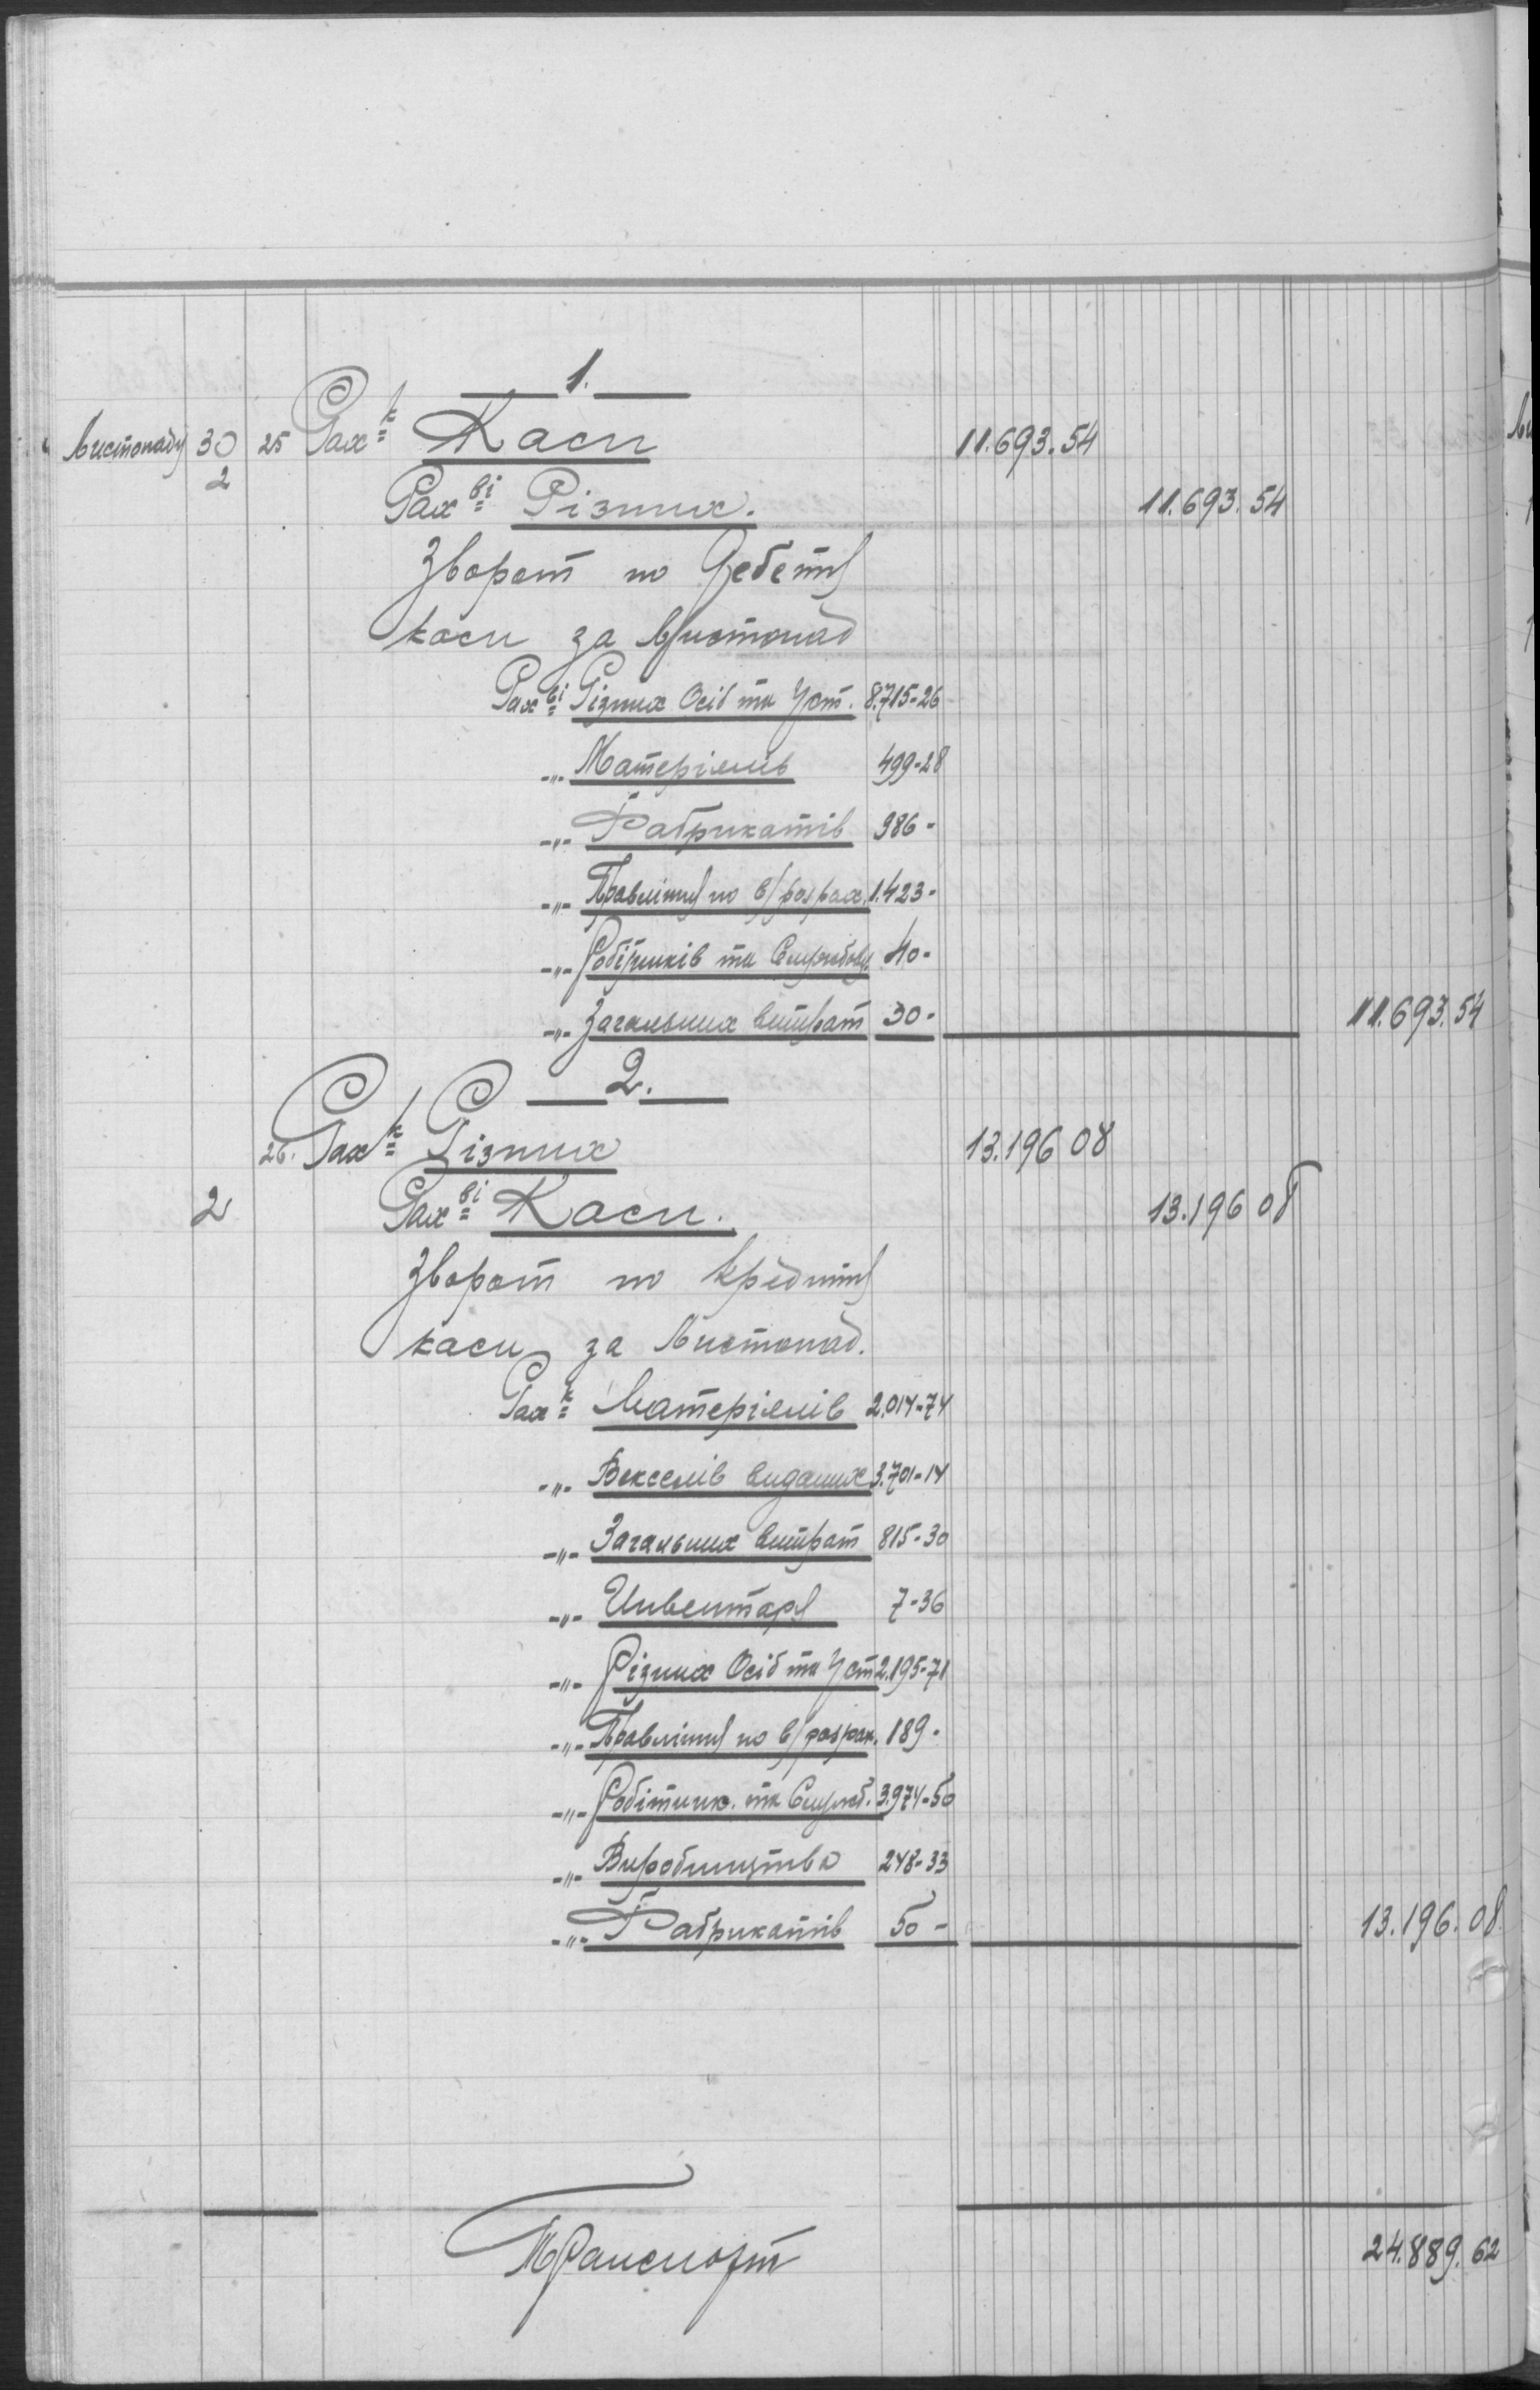 1.
Листопаду 30 25 Рах-к Каси 11.693.54
2 Рах-ві Різних. 11.693.54
Зворот по Дебету
каси за Листопад
Рах-ві Різних Осіб та Уст. 8.715-26
-"- Матеріялів 499-28
-"- Фабрикатів 986-
-"- Правлінню по в/розрах. 1.423-
-"- Робітників та Службовц. 40-
-"- Загальних витрат 30- 11.693.54
2.
26. Рах-к Різних 13.196 08
2 Рах-ві Каси. 13.196 08
Зворот по кредиту
каси за Листопад.
Рах-к Матеріялів 2.014-74
-"- Векселів виданих 3.701-14
-"- Загальних витрат 815-30
-"- Инвентарю 7-36
-"- Різних Осіб та Уст 2.195-71
-"- Правлінню по в/розрах. 189-
-"- Робітник. та Служб. 3.974-50
-"- Виробництва 248-33
-"- Фабрикатів 50- 13.196.08
Транспорт 24.889.62